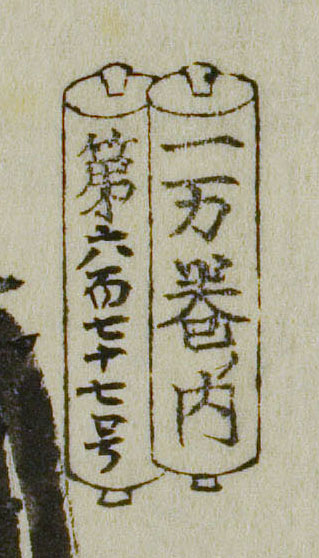 一万巻内
第六百七十七号